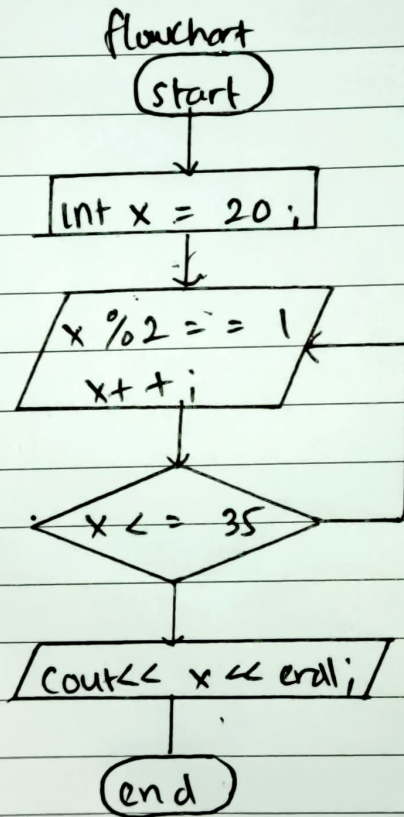 flowchart
start
int x = 20 ;
x % 2 = = 1
x + + ;
x < = 35
cout<< x << endl;
end